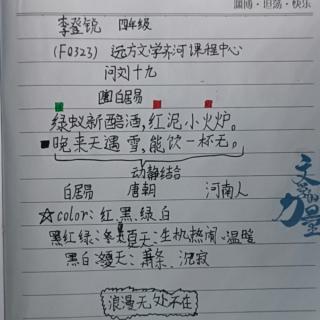 渊博·坦荡·快乐
李登锐 四年级
(F0323) 远方文学齐河课程中心
问刘十九
白居易
绿蚁新醅酒,红泥小火炉。
晚来天遇雪,能饮一杯无。
动静结合
白居易 唐朝 河南人
☆color:红、黑、绿、白
黑红绿:夏天:生机热闹、温暖
黑白:天:萧条、沉寂
浪漫无处不在
文学的力量